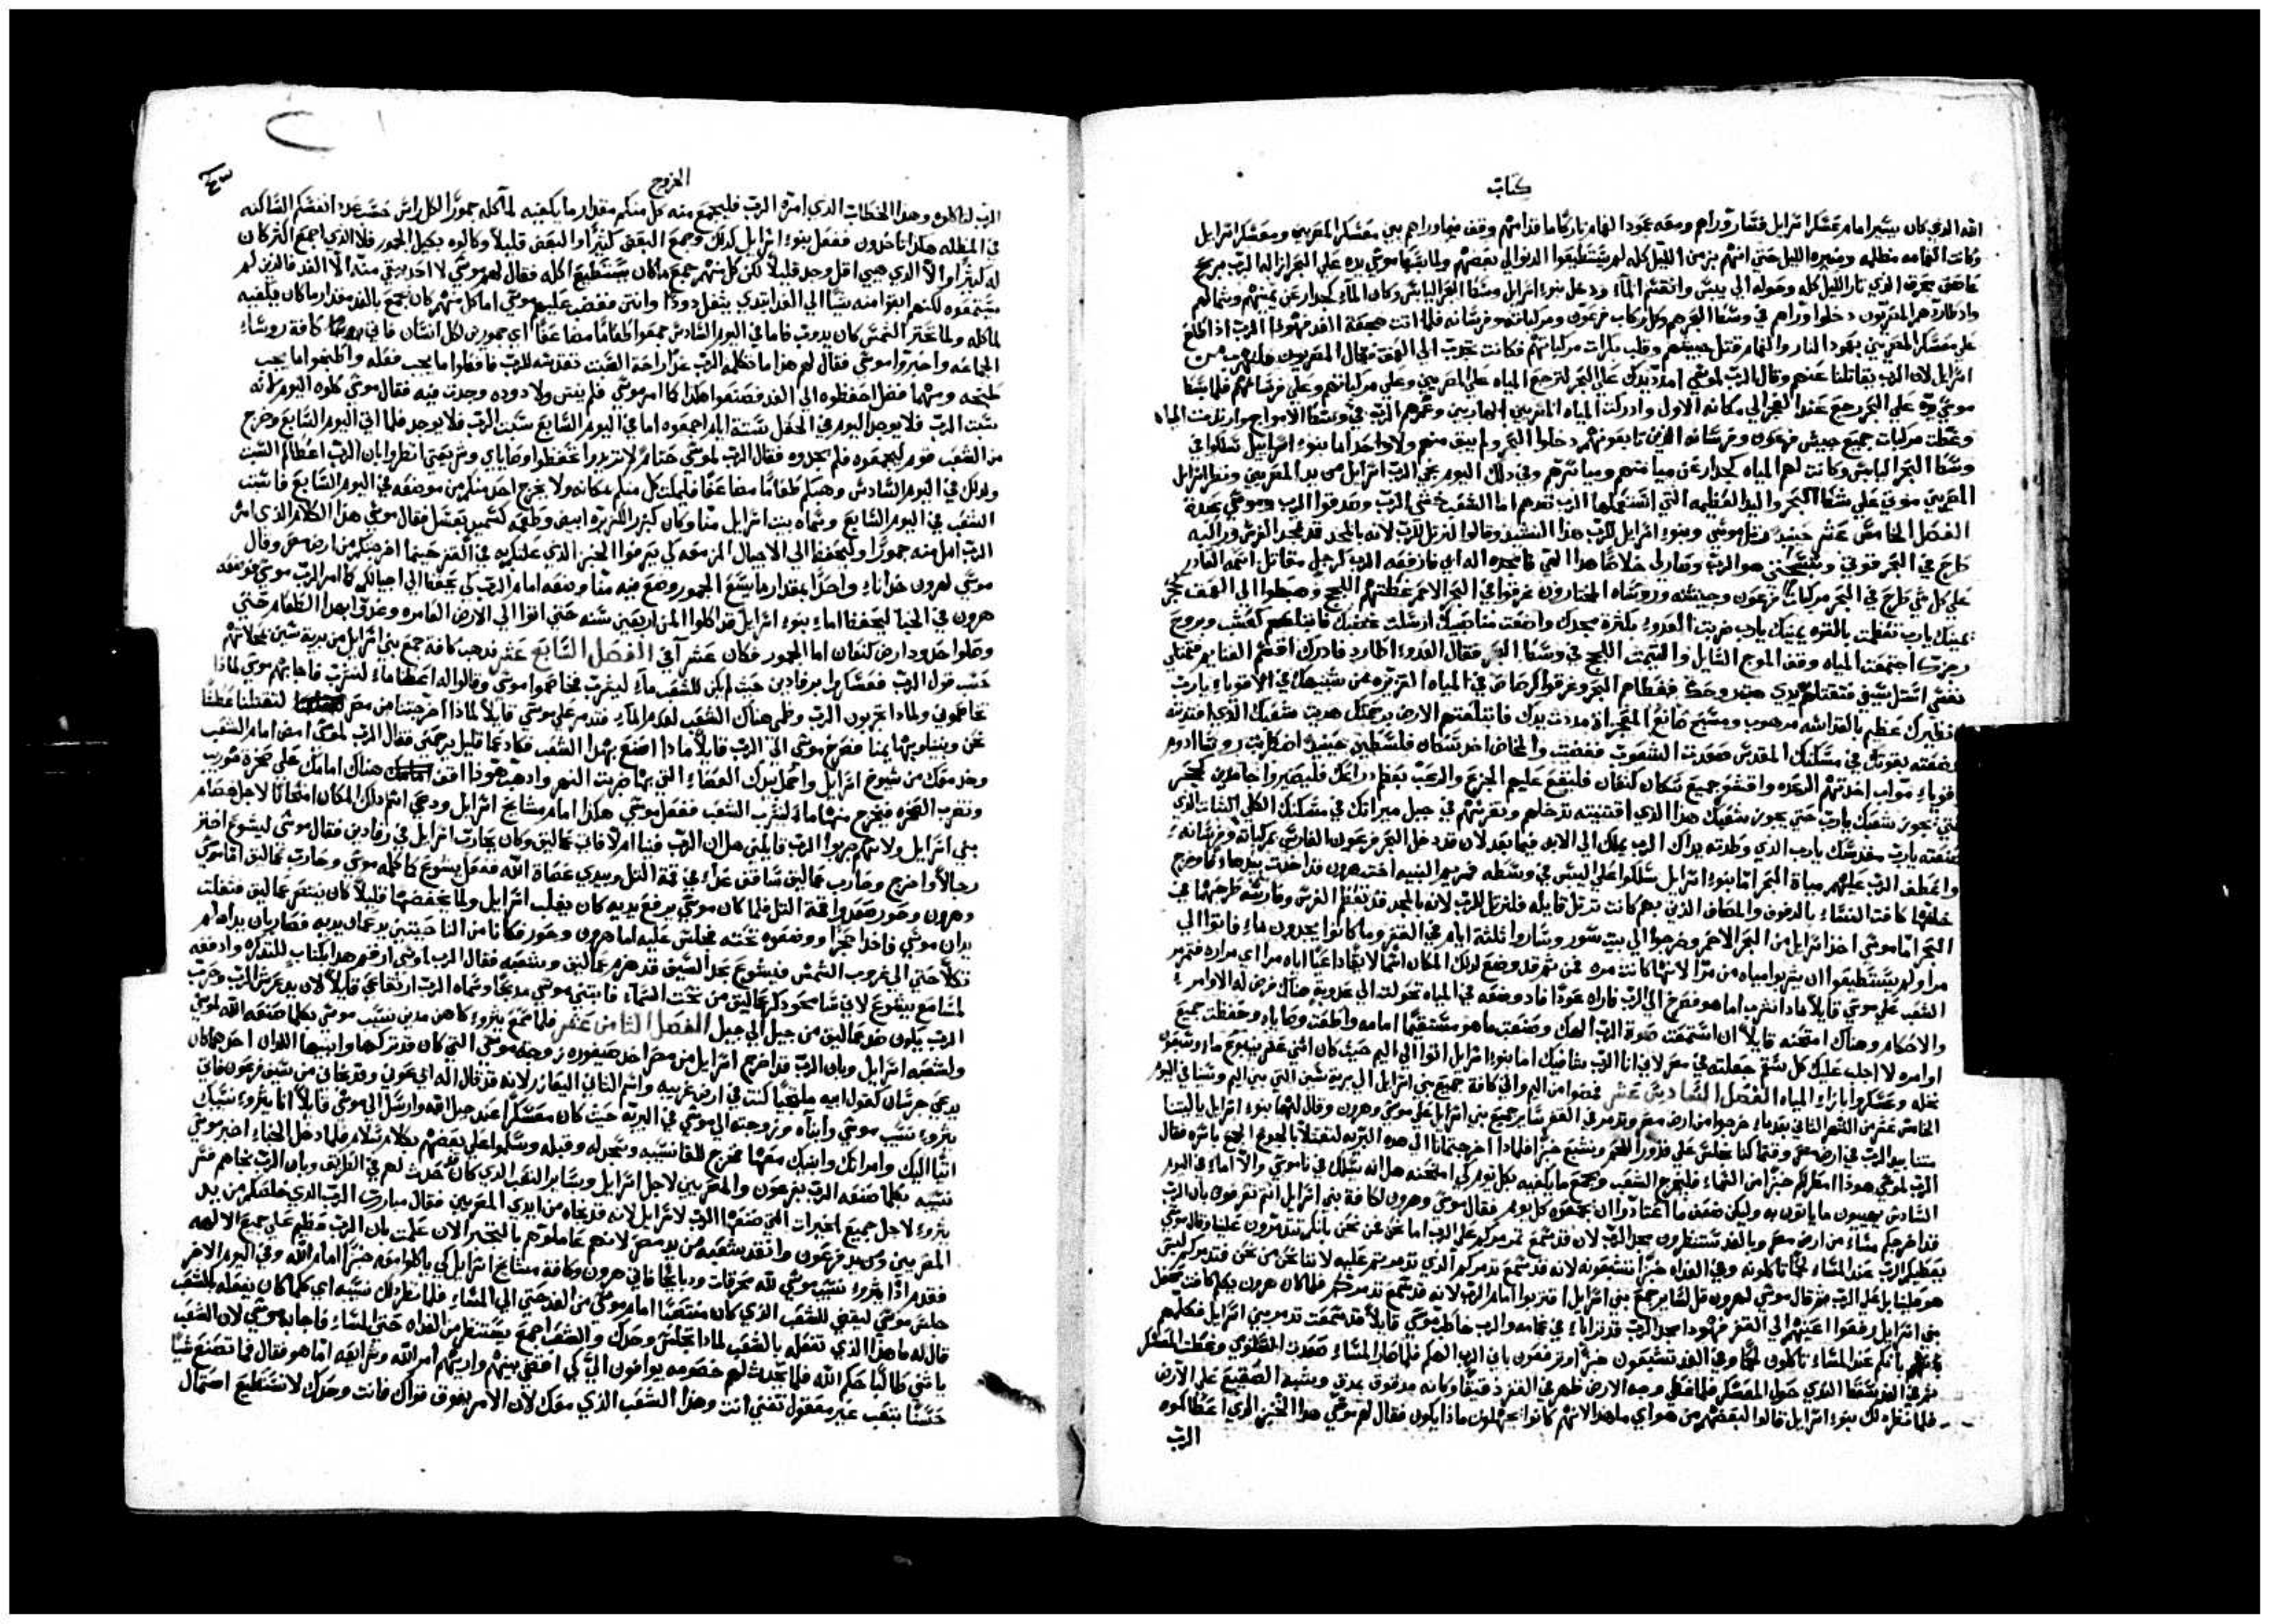 كتاب
الله الذي كان يسير امام معسكر اسرايل فسار وراهم ومعه عمود الغمام تاركا ما قدامهم وقف فيما وراهم بين معسكر المصريين ومعسكر اسرايل
وكانت الغمامه مظلمه ومنيره الليل حتى انهم من الليل كله لم يستطيعوا الدنو الى بعضهم ولما بسط موسى يده على البحر ازاله الرب بريح
عاصف محرق الليل كله وحوله الى يبس وانقسم الماء ودخل بنوا اسرايل وسط البحر اليابس وكان الماء كجدار عن يمينهم وشمالهم
دخلوا وراهم في وسط البحر وكل ركاب فرعون ومركباته وفرسانه فلما اتت هجعة الغد الرب اطلع
على معسكر المصريين بعمود النار والغمام فقتل جيشهم وقلب بكرات مركباتهم فقال المصريون نهرب من
اسرايل لان الرب يقاتلنا عنهم وقال الرب لموسى امدد يدك على البحر لترجع المياه على المصريين وعلى مركباتهم وعلى فرسانهم فلما بسط
موسى يده على البحر رجع عند الفجر الى مكانه الاول وادركت المياه المصريين الهاربين وغمرهم الرب في وسط الامواج وارتدت المياه
وغطت مركبات جميع جيش فرعون وفرسانه الذين تابعونهم دخلوا البحر ولم يبق منهم ولا واحد اما بنوا اسراييل سلكوا في
وسط البحر اليابس وكانت لهم المياه كجدار عن ميامنهم ومياسرهم وفي ذلك اليوم نجى الرب اسرايل من يد المصريين ونظر اسرايل
المصريين موتى على شط البحر واليد العظيمه التي استعملها الرب ضدهم اما الشعب خشى الرب وصدقوا الرب وموسى عبده
الفصل الخامس عشر حينيذ رتل موسى وبنوا اسرايل للرب هذا النشيد وقالوا لنرتل للرب لانه بالمجد قد تمجد الفرس وراكبه
طرح في البحر قوتي وتسبحتي هو الرب وصار لي خلاصا هذا الهي فامجده اله ابي فارفعه الرب كرجل مقاتل اسمه القادر
على كل شي طرح في البحر مركبات فرعون وجيشه وروساه المختارون غرقوا في البحر الاحمر غطتهم اللجج وهبطوا الى العمق كحجر
يمينك يارب تعظمت بالقوه يمينك يارب ضربت العدو وبكثرة مجدك واضعت مناصبيك ارسلت غضبك فاكلهم كعشب وبروح
رجزك اجتمعت المياه وقف الموج السايل والتيمت اللجج في وسط البحر فقال العدو اطارد فادرك اقسم الغنايم فتمتلي
نفسي استل سيفي فتقتلهم يدي هبت وحك فغطاهم البحر وغرقوا كرصاص في المياه الغزيره من شبيهك في الاقويا يارب
ونظيرك عظيم بالقداسه مرهوب ومسبح صانع المعجزات مددت يدك فابتلعتهم الارض برحمتك هديت شعبك الذي افتديته
وضعته بقوتك في مسكنك المقدس صعدت الشعوب فغضبت والمخاض اخذ سكان فلسطين حينيذ اضطربت روسا ادوم
اقويا مواب اخذتهم الرعده واقشعر جميع سكان كنعان فليقع عليهم الجزع والرعب بعظم ذراعك فليصيروا جامدين كحجر
حتى يجوز شعبك يارب حتى يجوز شعبك هذا الذي اقتنيته تدخلهم وتغرسهم في جبل ميراثك في مسكنك الكلي الثبات الذي
صنعته يارب مقدسك يارب الذي وطدته يداك الرب يملك الى الابد فيما بعد لان قد دخل البحر فرعون الفارس بمركباته وفرسانه
واعطف الرب عليهم مياه البحر اما بنوا اسرايل سلكوا على اليبس في وسطه مريم النبيه اخت هرون قد اخذت بيدها دفا وخرج
خلفها كافة النسا بالدفوف والمصاف الذين بهم كانت ترتل قايله فلنرتل للرب لانه بالمجد قد تعظم الفرس وفارسه طرحهما في
البحر اما موسى اخذ اسرايل من البحر الاحمر وخرجوا الى بريت سور وساروا ثلثة ايام في القفر وما كانوا يجدون ماء فاتوا الى
مرا ولم يستطيعوا ان يشربوا مياه من مرا لانها كانت مره فمن ثم قد وضع لذلك المكان اسما لايقا داعيا اياه مرا اي مراره فتمرمر
الشعب على موسى قايلا ماذا نشرب اما هو فصرخ الى الرب فاراه عودا فاذ وضعه في المياه تحولت الى عذوبه هناك فرض له الاوامر
والاحكام وهناك امتحنه قايلا ان استمعت صوت الرب الهك وصنعت ما هو مستقيما امامه واطعت وصاياه وحفظت جميع
اوامره لا اجلب عليك كل سقم جعلته في مصر لاني انا الرب شافيك اما بنوا اسرايل اتوا الى اليم حيث كان اثني عشر ينبوع ماء وسبعون
نخله وعسكروا بازا المياه الفصل السادس عشر فمضوا من اليم واتى كافة جميع بني اسرايل الى برية سين التي بين اليم وسينا في اليوم
الخامس عشر من الشهر الثاني بعد ما خرجوا من ارض مصر وتذمر في القفر ساير جميع بني اسرايل على موسى وهرون وقال لهما بنوا اسرايل ياليتنا
متنا بيد الرب في ارض مصر وقتما كنا نجلس على قدور اللحم ونشبع خبزا فلماذا اخرجتمانا الى هذه البريه لتقتلا بالجوع الجمع باسره فقال
الرب لموسى هوذا امطر لكم خبزا من السما فليخرج الشعب ويجمع ما يكفيه بكل يوم لكي امتحنه هل انه يسلك في ناموسي والا اما في اليوم
السادس يهييون ما ياتون به وليكن ضعف ما اعتادوا ان يجمعوه كل يوم فقال موسى وهرون لكافة بني اسرايل انتم تعرفون بان الرب
قد اخرجكم مساء من ارض مصر وبالغد ستنظرون مجد الرب لان قد سمع تمرمركم على الرب اما نحن من نحن بانكم تتذمرون علينا وقال موسى
يعطيكم الرب عند المساء لحما تاكلونه وفي الغداه خبزا تشبعونه لانه قد سمع تذمركم الذي تذمرتم عليه لاننا نحن من نحن فتذمركم ليس
هو علينا بل على الرب ثم قال موسى لهرون قل لساير جمع بني اسرايل اقتربوا امام الرب لانه قد سمع تذمركم فلما كان هرون يكلم كافت محفل
بني اسرايل رفعوا اعينهم الى القفر فهوذا مجد الرب قد تراءى في غمامه والرب خاطب موسى قايلا قد سمعت تذمر بني اسرايل فكلمهم
بانكم عند المساء تاكلون لحما وفي الغد تشبعون خبزا وتعرفون باني الرب الهكم فلما صار المساء صعدت السلوى وغطت المعسكر
حول المعسكر فلما غطى وجه الارض ظهر في القفر دقيقا وكانه مدقوق بمدق وشبه الصقيع على الارض
فلما نظر ذلك بنوا اسرايل قالوا لبعضهم من هو اي ما هذا لانهم كانوا يجهلون ماذا يكون فقال لهم موسى هذا الخبز الذي اعطاكموه
الرب
الخروج
٤٣
الرب لتاكلوه وهذا الخطاب الذي امر الرب فليجمع منه كل منكم مقدار ما يكفيه لماكله جمورا لكل راس حسب عدد انفسكم الساكنه
في المظله هكذا تاخذون ففعل بنوا اسرايل كذلك وجمع البعض كثيرا والبعض قليلا وكالوه بكيل الجمور فلا الذي اجمع اكثر كان
له كثيرا ولا الذي هيى اقل وجد قليلا لكن كل منهم جمع ما كان يستطيع اكله فقال لهم موسى لا احد يبقي منه الى الغد فالذين لم
يستمعوه لكنهم ابقوا منه شيا الى الغد ابتدي يشغل دودا وانتن فغضب عليهم موسى اما كل منهم كان يجمع بالغد مقدار ما كان يكفيه
لماكله ولما تحتر الشمس كان يذوب فاما في اليوم السادس جمعوا طعاما مضاعفا اي جمورين لكل انسان فاتى كافة روساء
الجماعه واخبروا موسى فقال لهم هذا ما تكلمه الرب غدا راحة السبت تقدسه للرب فافعلوا ما يجب فعله واطبخوا ما يجب
طبخه ومهما فضل احفظوه الى الغد فصنعوا هكذا كما امر موسى فلم ينتن ولا دوده وجدت فيه فقال موسى كلوه اليوم لانه
سبت الرب فلا يوجد اليوم في الحقل ستة ايام اجمعوه اما في اليوم السابع سبت الرب فلا يوجد فلما اتى اليوم السابع وخرج
من الشعب قوم ليجمعوه فلم يجدوه فقال الرب لموسى حتام لا تريدوا تحفظوا وصاياي وشريعتي انظروا بان الرب اعطاكم السبت
ولذلك في اليوم السادس وهبكم طعاما مضاعفا فليمكث كل منكم مكانه ولا يخرج احد منكم من موضعه في اليوم السابع فاسبت
الشعب في اليوم السابع وسماه بيت اسرايل منا وكان كبزر الكزبره ابيض وطعمه كسميد بعسل فقال موسى هذا الكلام الذي امر
الرب امل منه جمورا وليحفظ الى الاجيال المزمعه لكي يعرفوا الخبز الذي علتكم به في القفر حينما اخرجتكم من ارض مصر وقال
موسى لهرون خذ اناء واحدا بمقدار ما يسع الجمور وضع فيه منا وضعه امام الرب كي يحفظ الى اجيالكم كما امر الرب موسى فوضعه
هرون في الخبا ليحفظ اما بنوا اسرايل قد اكلوا المن اربعين سنه حتى اتوا الى الارض العامره وعدقوا بهذا الطعام حتى
وصلوا حدود ارض كنعان اما الجمور فكان عشر آفي الفصل السابع عشر فذهب كافة جمع بني اسرايل من برية سين بمحلاتهم
حسب قول الرب فعسكروا برفادين حيث لم يكن للشعب ماء ليشرب فخاصموا موسى وقالوا له اعطنا ماء لنشرب فاجابهم موسى لماذا
تخاصموني ولماذا تجربون الرب وظمى هناك الشعب لعدم الماء فتذمر على موسى قايلا لماذا اخرجتنا من مصر لتقتلنا عطشا
نحن وبنينا وبهايمنا فصرخ موسى الى الرب قايلا ماذا اصنع بهذا الشعب فكاد عما قليل يرجمني فقال الرب لموسى امض امام الشعب
وخذ معك من شيوخ اسرايل واحمل بيدك العصا التي بها ضربت النهر واذهب هوذا اقف هناك امامك على صخرة حوريب
وتضرب الصخره فيخرج منها ماء ليشرب الشعب ففعل موسى هكذا امام مشايخ اسرايل ودعي اسم ذلك المكان امتحانا لاجل خصام
بني اسرايل ولانهم جربوا الرب قايلين هل ان الرب فينا ام لا فاتى عماليق وكان يحارب اسرايل في رفادين فقال موسى ليشوع اختر
رجالا واخرج وحارب عماليق ساقف غدا في قمة التل وبيدي عصاة الله ففعل يشوع كما كلمه موسى وحارب عماليق اما موسى
وهرون وحور صعدوا قمة التل فلما كان موسى يرفع يديه كان يغلب اسرايل ولما يخفضهما قليلا كان ينتصر عماليق فثقلت
يدان موسى فاخذا حجرا ووضعوه تحته فجلس عليه اما هرون وحور فكانا من الناحيتين يدعمان يديه فصار بان يداه لم
تكلا حتى الى غروب الشمس فيشوع بحد السيف قد هزم عماليق وشعبه فقال الرب لموسى ارقم هذا بكتاب للتذكره وادفعه
لمسامع يشوع لاني سامحو ذكر عماليق من تحت السماء فابتنى موسى مذبحا وسماه الرب ارتفاعي قايلا لان يد عرش الرب وحرب
الرب يكون ضد عماليق من جيل الى جيل الفصل الثامن عشر فلما سمع يثرو كاهن مدين نسيب موسى بكلما صنعه الله لموسى
ولشعبه اسرايل وبان الرب قد اخرج اسرايل من مصر اخذ صيفوره زوجة موسى التي كان قد تركها وابنيها اللذان احدهما كان
يدعى جرسان كقول ابيه ملتجيا كنت في ارض غريبه واسم الثاني اليعازر لانه قد قال اله ابي عوني وقد نجاني من سيف فرعون فاتى
يثرو نسيب موسى وابناه وزوجته الى موسى في البريه حيث كان معسكرا عند جبل الله وارسل الى موسى قايلا انا يثرو نسيبك
اتيا اليك وامراتك وابنيك معها فخرج للقا نسيبه وسجد له وقبله وسلموا على بعضهم بكلام سلام فلما دخل الخباء اخبر موسى
نسيبه بكلما صنعه الرب بفرعون والمصريين لاجل اسرايل وساير التعب الذي كان حدث لهم في الطريق وبان الرب نجاهم فسر
يثرو لاجل جميع الخيرات التي صنعها الرب لاسرايل لانه قد نجاه من ايدي المصريين فقال مبارك الرب الذي خلصكم من يد
المصريين ومن يد فرعون وانقذ شعبه من يد مصر لانهم عاملوهم بالتجبر الان علمت بان الرب عظيم على جميع الالهه
فقدم اذا يثرو نسيب موسى لله محرقات وذبايحا فاتى هرون وكافة مشايخ اسرايل كي ياكلوا معه خبزا امام الله وفي اليوم الاخر
جلس موسى ليقضي للشعب الذي كان منتصبا امام موسى من الغد حتى الى المساء فلما نظر ذلك نسيبه اي كلما كان يفعله بالشعب
قال له ما هذا الذي تفعله بالشعب لماذا تجلس وحدك والشعب اجمع ينتظر من الغداه حتى المساء فاجابه موسى لان الشعب
ياتي طالبا حكم الله فلما تحدث لهم خصومه يوافون الي كي اقضي بينهم واريهم امر الله وشرايعه اما هو فقال فما تصنع شيا
حسنا بتعب غير معقول تفنى انت وهذا الشعب الذي معك لان الامر يفوق قواك فانت وحدك لا تستطيع احتمال